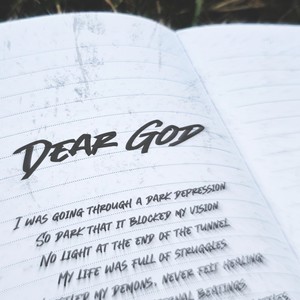 DEAR GOD
I WAS GOING THROUGH A DARK DEPRESSION
SO DARK THAT IT BLOCKED MY VISION
NO LIGHT AT THE END OF THE TUNNEL
MY LIFE WAS FULL OF STRUGGLES
MY DEMONS, NEVER FELT HEALING
BEATINGS